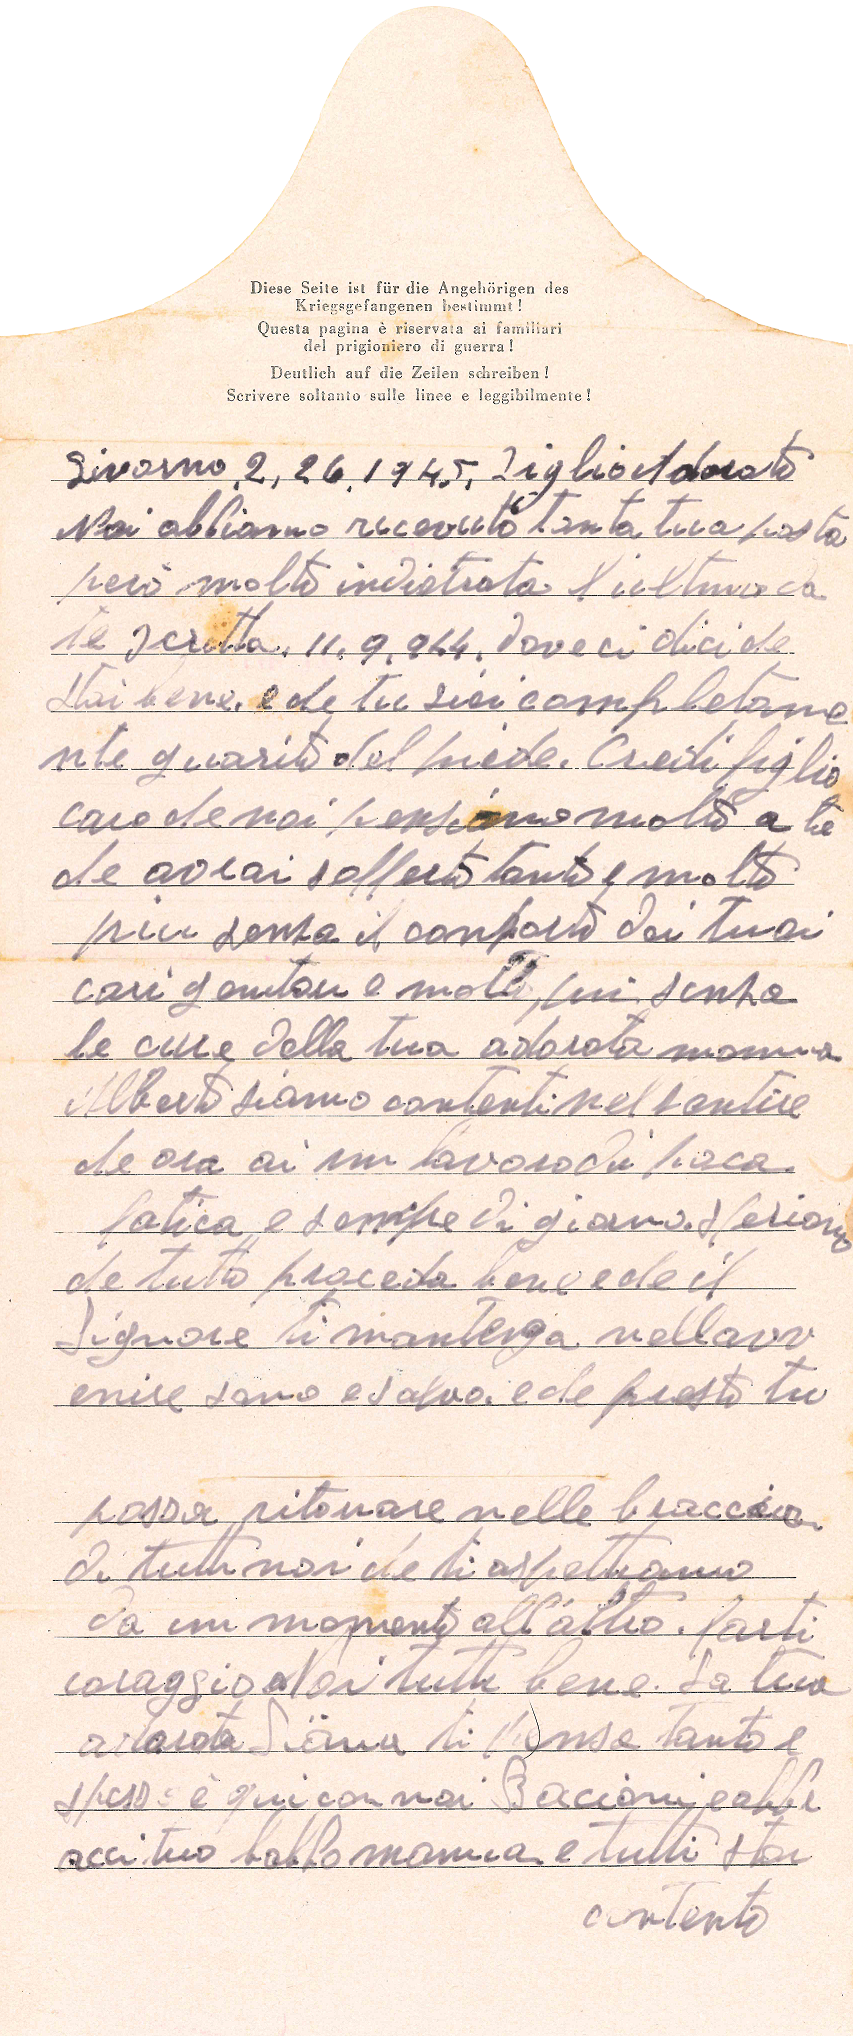 Diese Seite ist für die Angehörigen des
Kriegsgefangenen bestimmt!
Questa pagina è riservata ai familiari
del prigioniero di guerra!
Deutlich auf die Zeilen schreiben!
Scrivere soltanto sulle linee e leggibilmente!
Livorno, 2, 26, 1945, Figlio Adorato
Noi abbiamo ricevuto tanta tua posta
però molto indietrata l'ultima da
te scritta. 11. 9. 944. dove ci dici che
stai bene. e che tu sici completame
nte guarito del piede. Credi figlio
caro che noi pensiamo molto a te
che avrai sofferto tanto e molto
piu senza il conforto dei tuoi
cari genitori e molto piu senza
le cure della tua adorata mamma
Alberto siamo contenti nel sentire
che ora ai un lavoro di poca
fatica e sempre di giorno. Speriamo
che tutto proceda bene e che il
Signore ti mantenga nellavv
enire sano e salvo. e che presto tu
possa ritornare nelle braccia
di tutti noi che ti aspettiamo
da un momento all'altro. Fatti
coraggio Noi tutti bene. La tua
adorata Liana ti pensa tanto e
spesso è qui con noi Bacioni e abbr
acci tuo babbo mamma e tutti stai
contento